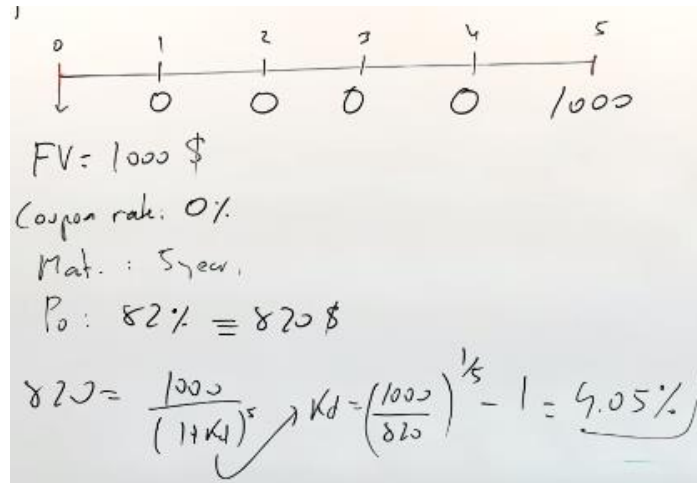 0 1 2 3 4 5
0 0 0 0 1000
FV = 1000 $
Coupon rate: 0%
Mat. : 5 year.
P₀ : 82% ≡ 820 $
820 = 1000 / (1+Kd)⁵ → Kd = (1000/820)^1/5 - 1 = 4.05%